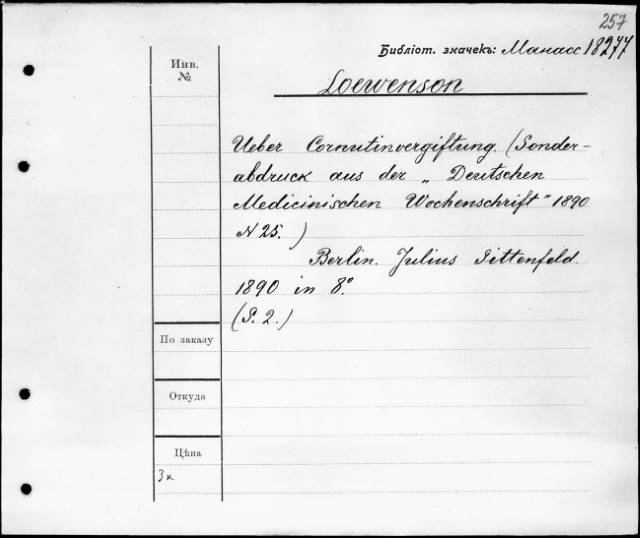 257
Библіот. значекъ: Манасс 18277
Инв.
№
Loewenson
Ueber Cornutinvergiftung. (Sonder-
abdruck aus der „Deutschen
Medicinischen Wochenschrift" 1890
N 25.)
Berlin. Julius Sittenfeld.
1890 in 8°.
(S. 2.)
По заказу
Откуда
Цѣна
3 к